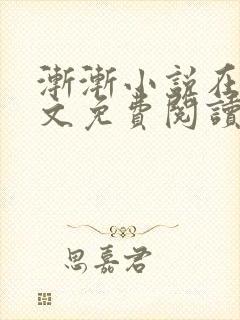 漸漸小說在
文免費閱讀
思嘉君